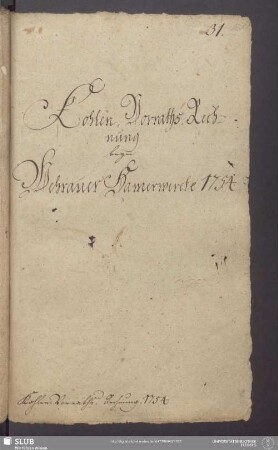 31.
Kohlen Vorraths Rech-
nung
bey
Wehrauer Hamerwercke 1754
Kohlen Vorraths Rechnung 1754
SLUB
Wir führen Wissen.